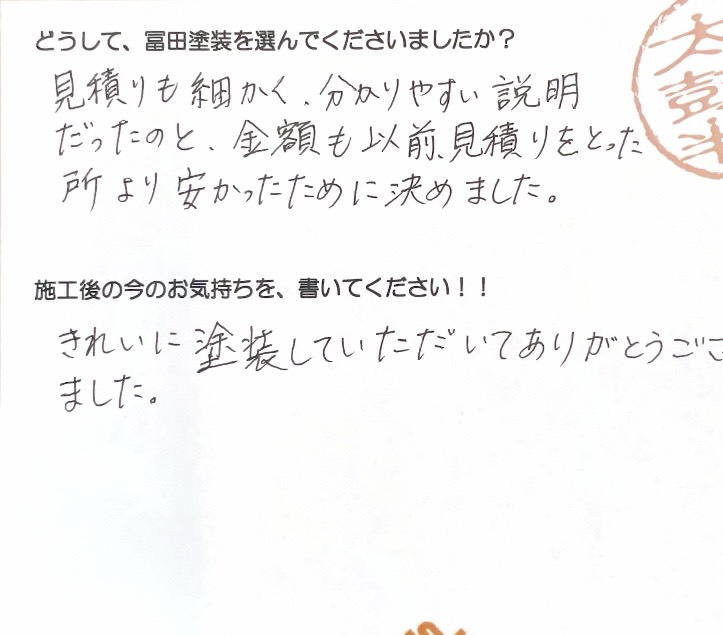 どうして、冨田塗装を選んでくださいましたか？
見積りも細かく、分かりやすい説明
だったのと、金額も以前、見積りをとった
所より安かったために決めました。
施工後の今のお気持ちを、書いてください！！
きれいに塗装していただいてありがとうござ
ました。